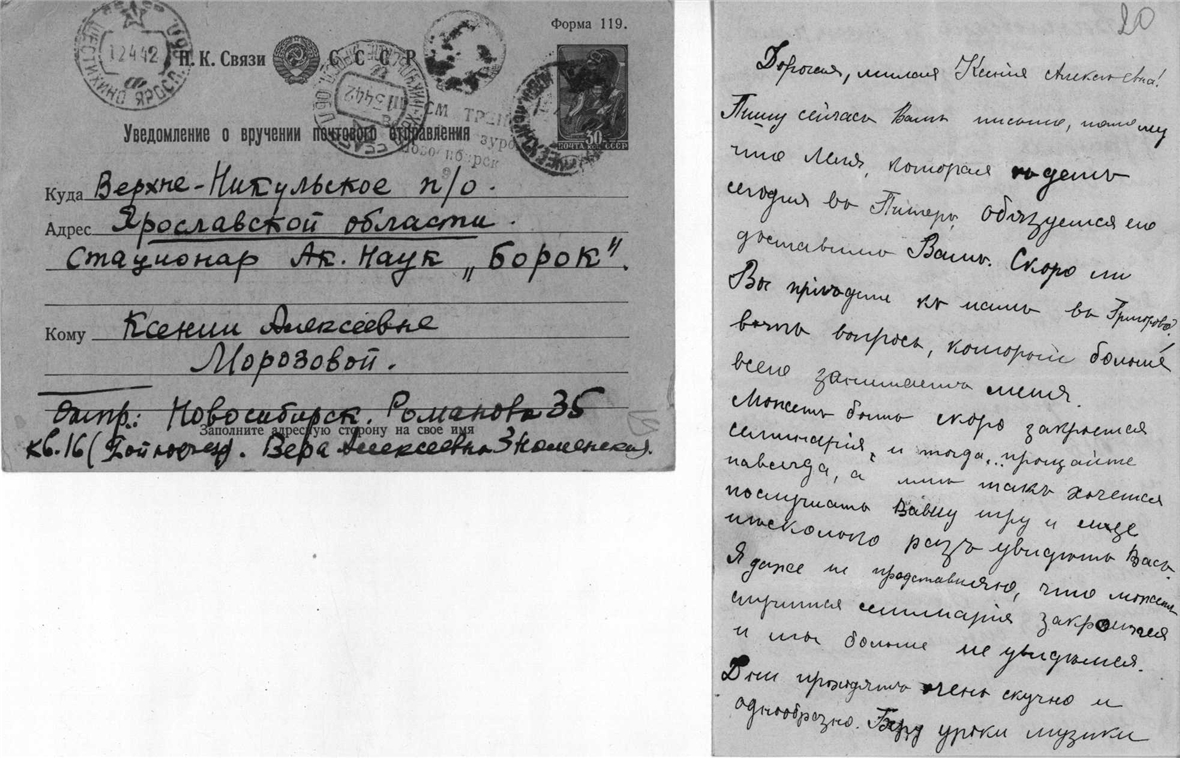 Форма 119.
Н. К. Связи С С С Р
12 4 42
Уведомление о вручении почтового отправления
30
ПОЧТА СССР
Куда Верхне-Никульское п/о.
Адрес Ярославской области.
Стационар Ак. Наук „Борок".
Кому Ксении Алексеевне
Морозовой.
Заполните адресную сторону на свое имя
Новосибирск, Романова 35
кв. 16 ( Вера Алексеевна Знаменская.
20
Дорогая, милая Ксения Алексѣевна!
Пишу сейчасъ Вамъ письмо, потому
что Леля, которая ѣдетъ
сегодня въ Питеръ, обязуется его
доставить Вамъ. Скоро ли
Вы пріѣдете къ намъ въ
вотъ вопросъ, который больше
всего занимаетъ меня.
Можетъ быть скоро закроется
семинарія, и тогда... прощайте
навсегда, а мнѣ такъ хочется
послушать Вашу игру и еще
нѣсколько разъ увидѣть Васъ.
Я даже не представляю, что можетъ
случится семинарія закроется
и мы больше не увидимся.
Дни проходятъ очень скучно и
однообразно. Беру уроки музыки